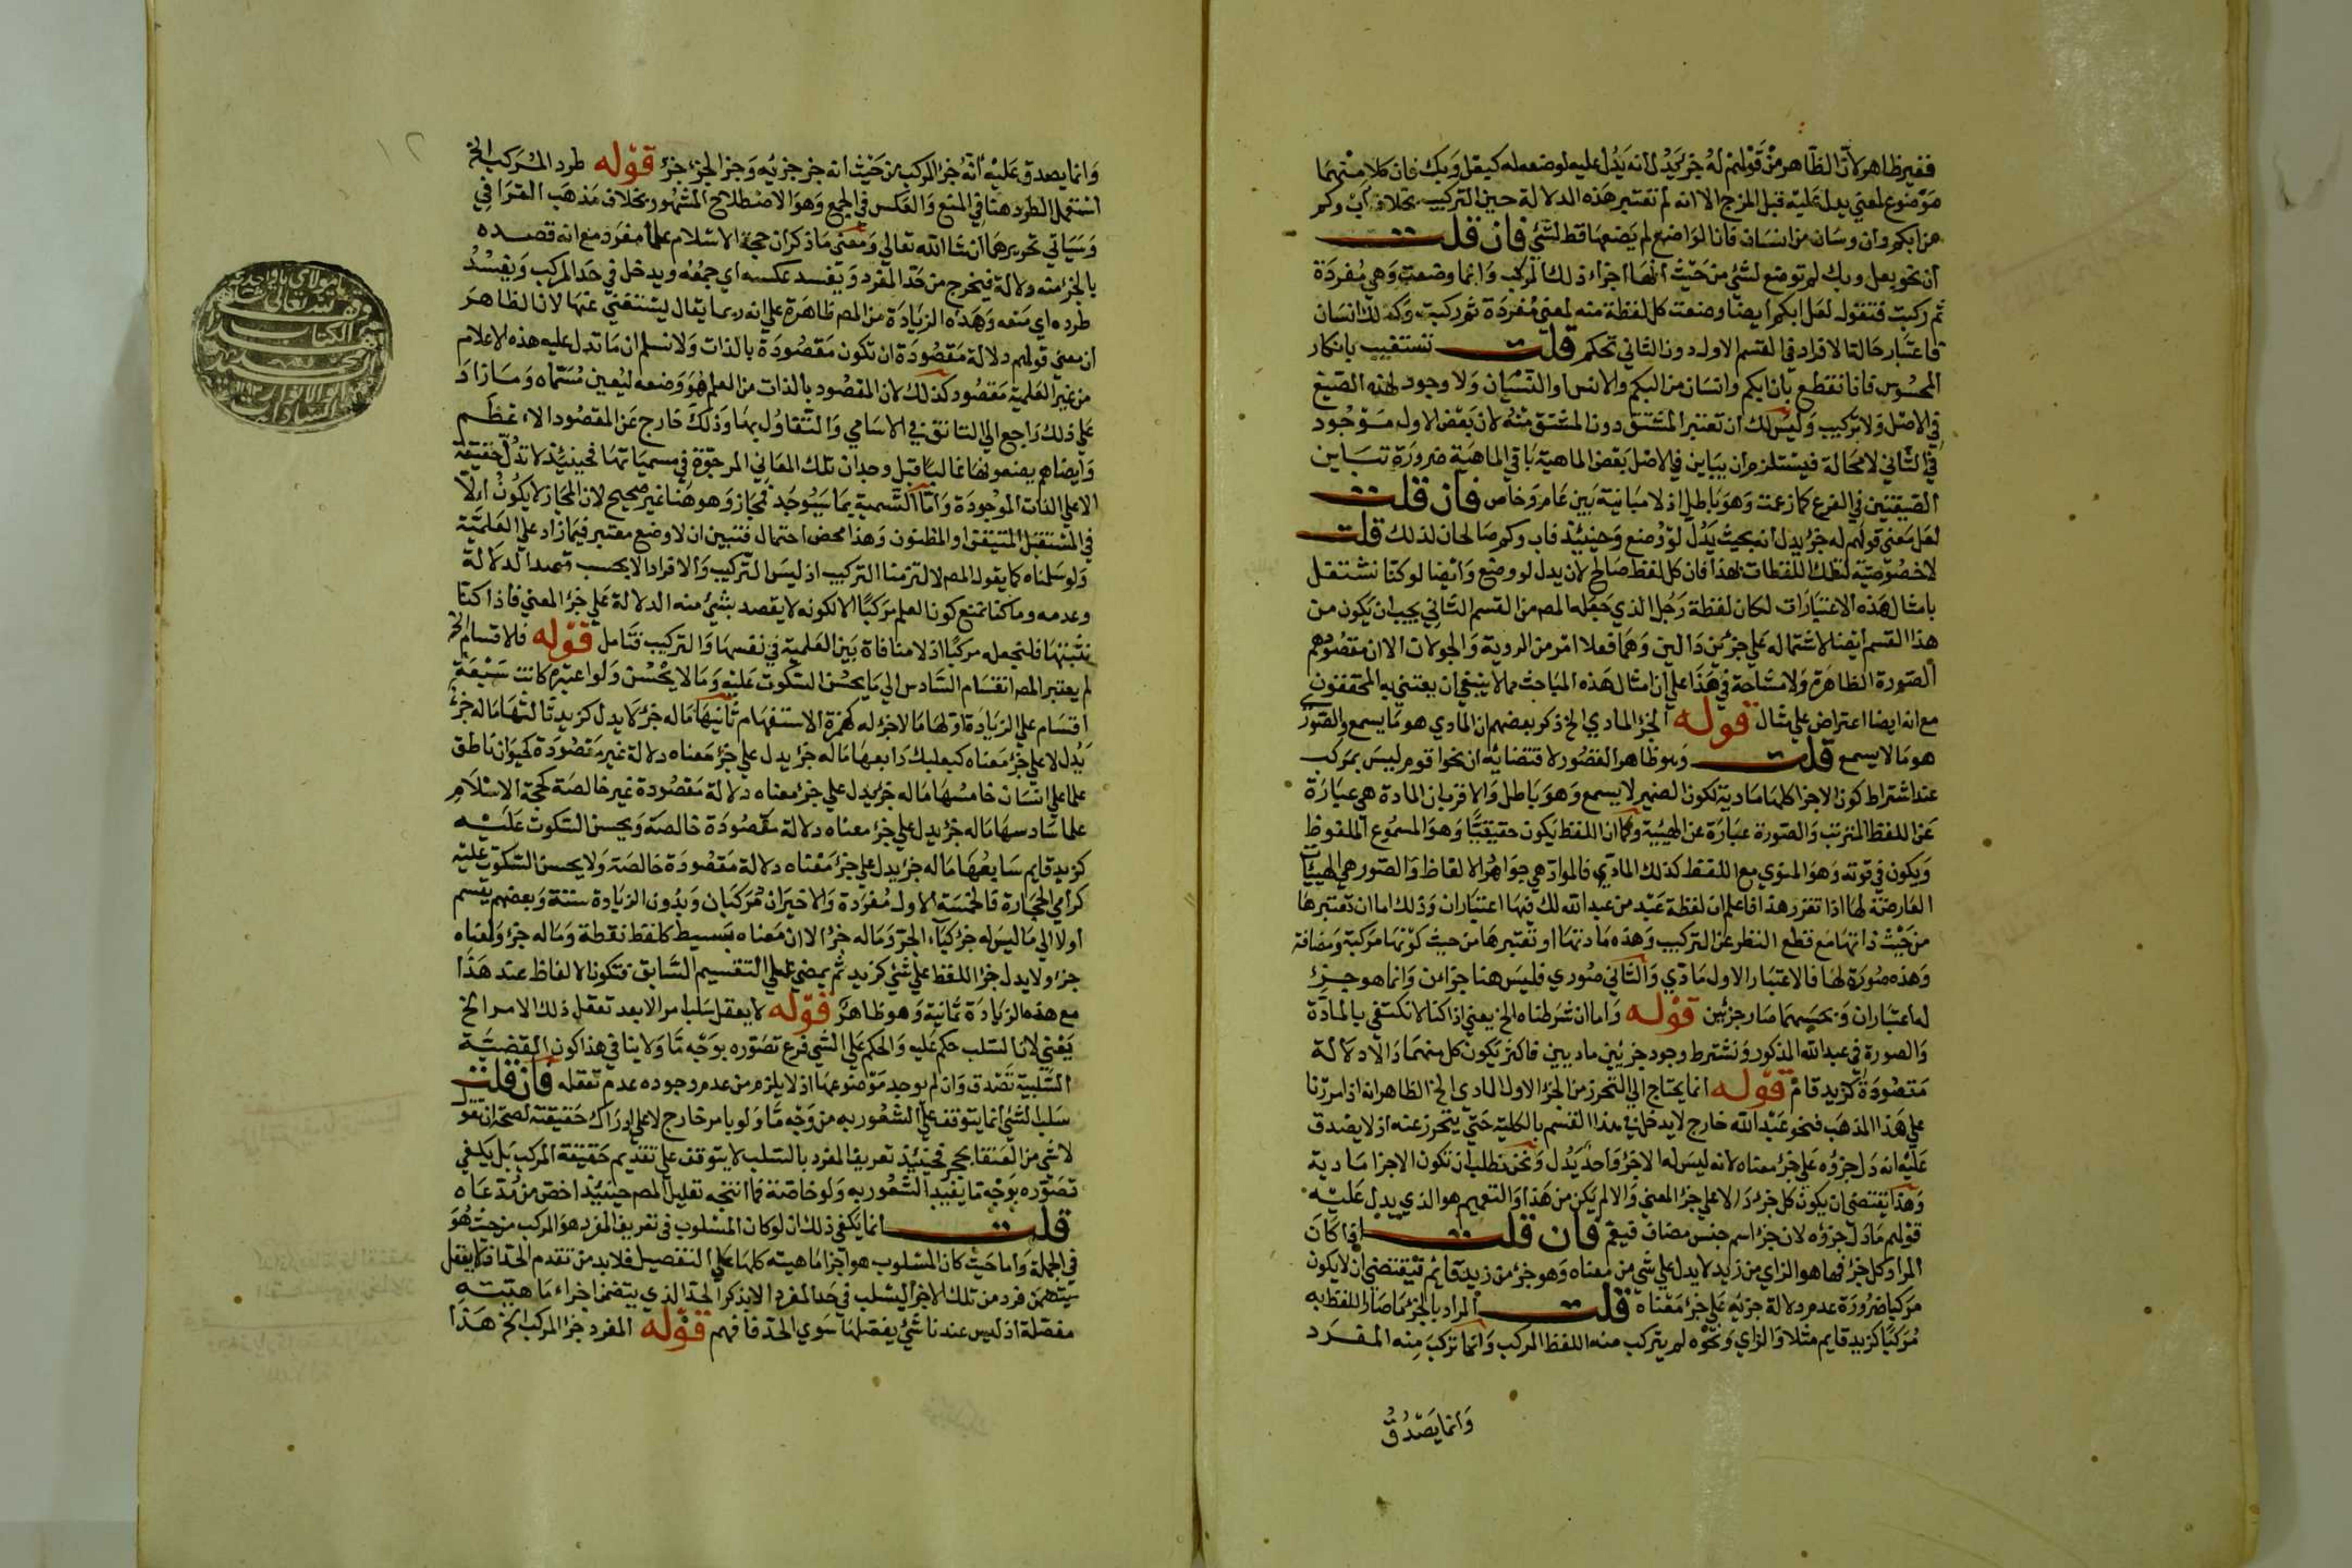 فغير ظاهر لان الظاهر من قولهم له جزء يدل انه يدل عليه لوضعه له كبعل وبك فان كلا منهما
موضوع لمعنى يدل عليه قبل المزج الا انه لم تعتبر هذه الدلالة حين التركيب بخلاف اب وكم
من ابكم وان وسان من انسان فان الواضع لم يضعها قط لشئ فان قلت
ان نحو بعل وبك لم توضع لشئ من حيث انها اجزاء ذلك المركب وانما وضعت وهي مفردة
ثم ركبت فنقول لعل ابكم ايضا وضعت كل لفظة منه لمعنى مفردة ثم ركبت وكذلك انسان
فاعتبار حالة الافراد في القسم الاول دون الثاني تحكم قلت نستغيب بانكار
المحسوس فانا نقطع بان ابكم وانسان من البكم والانس او النسيان ولا وجود لهذه الصيغ
في الاصل ولا تركيب وليس لك ان تعتبر المشتق دون المشتق منه لان بعض الاول موجود
في الثاني لا محالة فيستلزم ان يباين في الاصل بعض الماهية باقي الماهية ضرورة تباين
الصيغتين في الفرع كما زعمت وهو باطل اذ لا مباينة بين عام وخاص فان قلت
لعل معنى قولهم له جزء يدل انه بحيث يدل لو وضع وحينئذ فاب وكم صالحان لذلك قلت
لا خصوصية لتلك اللفظات بهذا فان كل لفظ صالح لان يدل لو وضع وايضا لو كنا نشتغل
بامثال هذه الاعتبارات لكان لفظة رجل الذي جعله المص من القسم الثاني يجب ان يكون من
هذا القسم ايضا لاشتماله على جزئين دالين وهما فعلا امر من الروية والجولان الا ان مقصودهم
الصورة الظاهرة ولا مشاحة في هذا على ان امثال هذه المباحث مما لا ينبغي ان يعتني به المحققون
مع انه ايضا اعتراض على مثال قوله الجزء المادي الخ ذكر بعضهم ان المادي هو ما يسمع والصوري
هو ما لا يسمع قلت وهو ظاهر القصور لاقتضايه ان نحو اقوم ليس بمركب
عند اشتراط كون الاجزا كلها مادية لكون الضمير لا يسمع وهو باطل والاقرب ان المادة هي عبارة
عن اللفظ المترتب والصورة عبارة عن الهيئة وكما ان اللفظ يكون حقيقيا وهو المسموع الملفوظ
ويكون في قوته وهو المنوي مع اللفظ كذلك المادي فالمواد هي جواهر الالفاظ والصور هي الهيئات
العارضة لها اذا تقرر هذا فاعلم ان لفظة عبد من عبد الله لك فيها اعتباران وذلك اما ان تعتبرها
من حيث ذاتها مع قطع النظر عن التركيب وهذه مادتها او تعتبرها من حيث كونها مركبة ومضافة
وهذه صورة لها فالاعتبار الاول مادي والثاني صوري فليس هنا جزآن وانما هو جزء
له اعتباران وبحسبهما صار جزئين قوله واما ان شرطناه الخ يعني اذا كنا لا نكتفي بالمادة
والصورة في عبد الله المذكور ونشترط وجود جزئين ماديين فاكثر يكون كل منهما دالا دلالة
مقصودة كزيد قام قوله انما يحتاج الى التحرز من الجزء الاول المادي الخ الظاهر انه اذا مررنا
على هذا المذهب فنحو عبد الله خارج لا يدخل في هذا القسم بالكلية حتى يتحرز عنه اذ لا يصدق
عليه انه دل جزؤه على جزء معناه لانه ليس له الا جزء واحد يدل ونحن نطلب ان تكون الاجزا مادية
وهذا يقتضي ان يكون كل جزء دالا على جزء المعنى والا لم يكن من هذا والتعميم هو الذي يدل عليه
قولهم ما دل جزؤه لان جزء اسم جنس مضاف فيعم فان قلت اذا كان
المراد كل جزء فها هو الزاي من زيد لا يدل على شئ من معناه وهو جزء من زيد قائم فيقتضي ان لا يكون
مركبا ضرورة عدم دلالة جزيه على جزء معناه قلت المراد بالجزء ما صار اللفظ به
مركبا كزيد قايم مثلا والزاي ونحوه لم يتركب منه اللفظ المركب وانما تركب منه المفرد
وانما يصدق
١٢
وانما يصدق عليه انه جزء المركب من حيث انه جزء جزئه وجزء الجزء جزء قوله طرد المركب الخ
استعمل الطرد هنا في المنع والعكس في الجمع وهو الاصطلاح المشهور بخلاف مذهب القرافي
وسياتي تحريرهما ان شا الله تعالى ومعنى ما ذكر ان حجة الاسلام علما مفرد مع انه قصد
بالجزء منه دلالة فيخرج من حد المفرد ويفسد عكسه اي جمعه ويدخل في حد المركب ويفسد
طرده اي منعه وهذه الزيادة من المص ظاهرة على انه ربما يقال يستغني عنها لان الظاهر
ان معنى قولهم دلالة مقصودة ان تكون مقصودة بالذات ولا نسلم ان ما تدل عليه هذه الاعلام
من غير العلمية مقصود كذلك لان المقصود بالذات من العلم هو وضعه ليعين مسماه وما زاد
على ذلك راجع الى التانق في الاسامي والتفاول بها وذلك خارج عن المقصود الاعظم
وايضا هم يضعونها غالبا قبل وجدان تلك المعاني المرجوة في مسمياتها فحينئذ لا تدل حقيقة
الا على الذات الموجودة واما التسمية بما سيوجد فمجاز وهو هنا غير صحيح لان المجاز لا يكون الا
في المستقبل المتيقن او المظنون وهذا محض احتمال فتبين ان لا وضع معتبر فيما زاد على العلمية
ولو سلمناه كما يقول المص لالتزمنا التركيب اذ ليس التركيب والافراد الا بحسب قصد الدلالة
وعدمه وما كنا نمنع كون العلم مركبا الا لكونه لا يقصد بشئ منه الدلالة على جزء المعنى فاذا كنا
نثبتها فلنجعله مركبا اذ لا منافاة بين العلمية في نفسها والتركيب فتامل قوله فلاقسام الخ
لم يعتبر المص انقسام السادس الى ما يحسن السكوت عليه وما لا يحسن ولو اعتبره كانت سبعة
اقسام على الزيادة اولها ما لا جزء له كهمزة الاستفهام ثانيها ما له جزء لا يدل كزيد ثالثها ما له جزء
يدل لا على جزء معناه كبعلبك رابعها ما له جزء يدل على جزء معناه دلالة غير مقصودة كحيوان ناطق
علما على انسان خامسها ما له جزء يدل على جزء معناه دلالة مقصودة غير خالصة كحجة الاسلام
علما سادسها ما له جزء يدل على جزء معناه دلالة مقصودة خالصة ويحسن السكوت عليه
كزيد قايم سابعها ما له جزء يدل على جزء معناه دلالة مقصودة خالصة ولا يحسن السكوت عليه
كرامي الحجارة فالخمسة الاول مفردة والاخيران مركبان وبدون الزيادة ستة وبعضهم يقسم
اولا الى ما ليس له جزء كباء الجر وما له جزء الا ان معناه بسيط كلفظ نقطة وما له جزء ولمعناه
جزء ولا يدل جزء اللفظ على شئ كزيد ثم يمضي على التقسيم السابق فتكون الالفاظ عند هذا
مع هذه الزيادة ثمانية وهو ظاهر قوله لا يعقل سلب امر الا بعد تعقل ذلك الامر الخ
يعني لان السلب حكم عليه والحكم على الشئ فرع تصوره بوجه ما ولا ينافي هذا كون القضية
السلبية تصدق وان لم يوجد موضوعها اذ لا يلزم من عدم وجوده عدم تعقله فان قلت
سلب الشئ انما يتوقف على الشعور به من وجه ما ولو بامر خارج لا على ادراك حقيقته لصحة ان نقول
لا شئ من العنقا بحجر فحينئذ تعريف المفرد بالسلب لا يتوقف على تقديم حقيقة المركب بل يكفي
تصوره بوجه ما يفيد الشعور به ولو خاصة فما انتجه تعليل المص حينئذ اخص من مدعاه
قلت انما يكفي ذلك ان لو كان المسلوب في تعريف المفرد هو المركب من حيث هو
في الجملة واما حيث كان المسلوب هو اجزا ماهيته كلها على التفصيل فلا بد من تقدم الحد اذ لا يعقل
فرد من تلك الاجزا ليسلب في حد المفرد الا بذكر الحد الذي يتضمن اجزاء ماهيته
مفصلة اذ ليس عندنا شئ يفصلها سوى الحد فافهم قوله المفرد جزء المركب الخ هذا